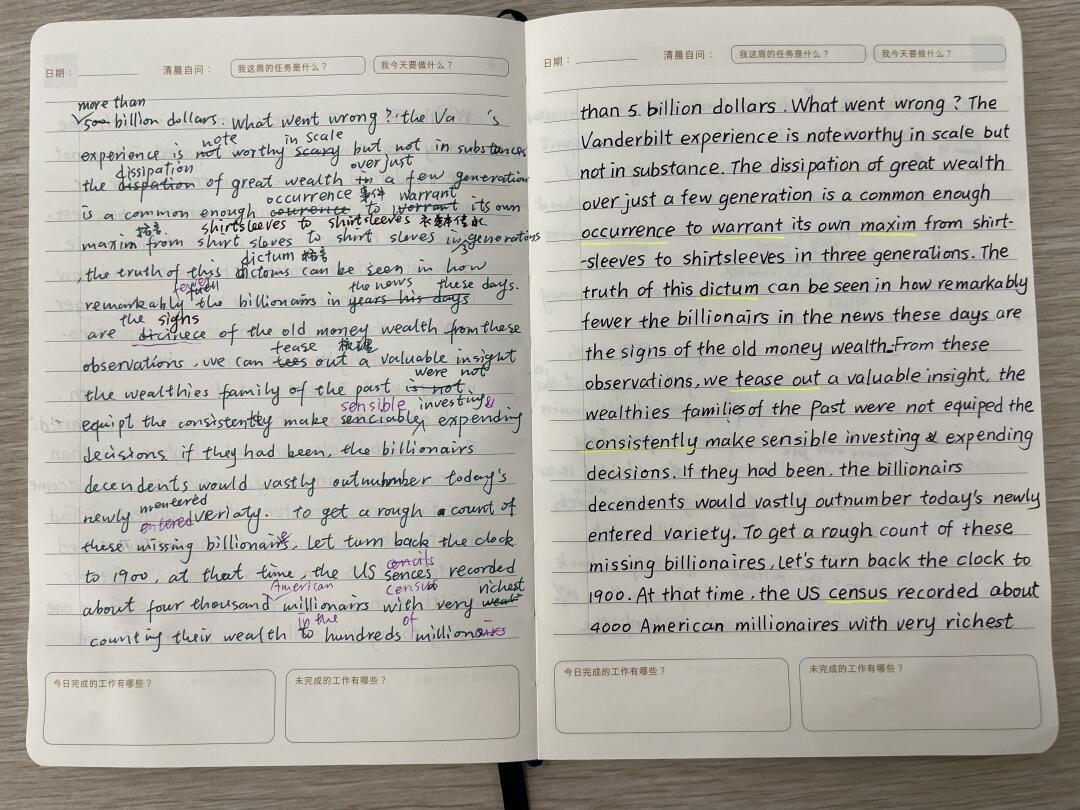 日期：
清晨自问：
我这周的任务是什么？
我今天要做什么？
more than
billion dollars. What went wrong? the Va 's
note in scale
experience is not worthy scary but not in substances
dissipation over just
the dispation of great wealth in a few generation
occurrence 事件 warrant
is a common enough ocurence to worrant its own
格言 shirtsleeves to shirtsleeves
maxim from shirt sloves to shirt sleves in 3 generations
dictum 格言
the truth of this dictoms can be seen in how
fewer the news these days.
remarkably the billionairs in years his days
the signs
are of the old money wealth from these
tease 梳理
observations, we can tees out a valuable insight
were not
the wealthies family of the past is not
sensible investing &
equipt the consistently make senciable expending
decisions if they had been, the billionairs
decendents would vastly outnumber today's
mentered
newly entered veriaty. to get a rough count of
these missing billionairs, let turn back the clock
to 1900, at that time, the US sences recorded
American census richest
about four thousand millionairs with very
in the of
counting their wealth to hundreds millionairs
今日完成的工作有哪些？
未完成的工作有哪些？
日期：
清晨自问：
我这周的任务是什么？
我今天要做什么？
than 5 billion dollars. What went wrong? The
Vanderbilt experience is noteworthy in scale but
not in substance. The dissipation of great wealth
over just a few generation is a common enough
occurrence to warrant its own maxim from shirt-
-sleeves to shirtsleeves in three generations. The
truth of this dictum can be seen in how remarkably
fewer the billionairs in the news these days are
the signs of the old money wealth. From these
observations, we tease out a valuable insight, the
wealthies families of the Past were not equiped the
consistently make sensible investing & expending
decisions. If they had been, the billionairs
decendents would vastly outnumber today's newly
entered variety. To get a rough count of these
missing billionaires, let's turn back the clock to
1900. At that time, the US census recorded about
4000 American millionaires with very richest
今日完成的工作有哪些？
未完成的工作有哪些？